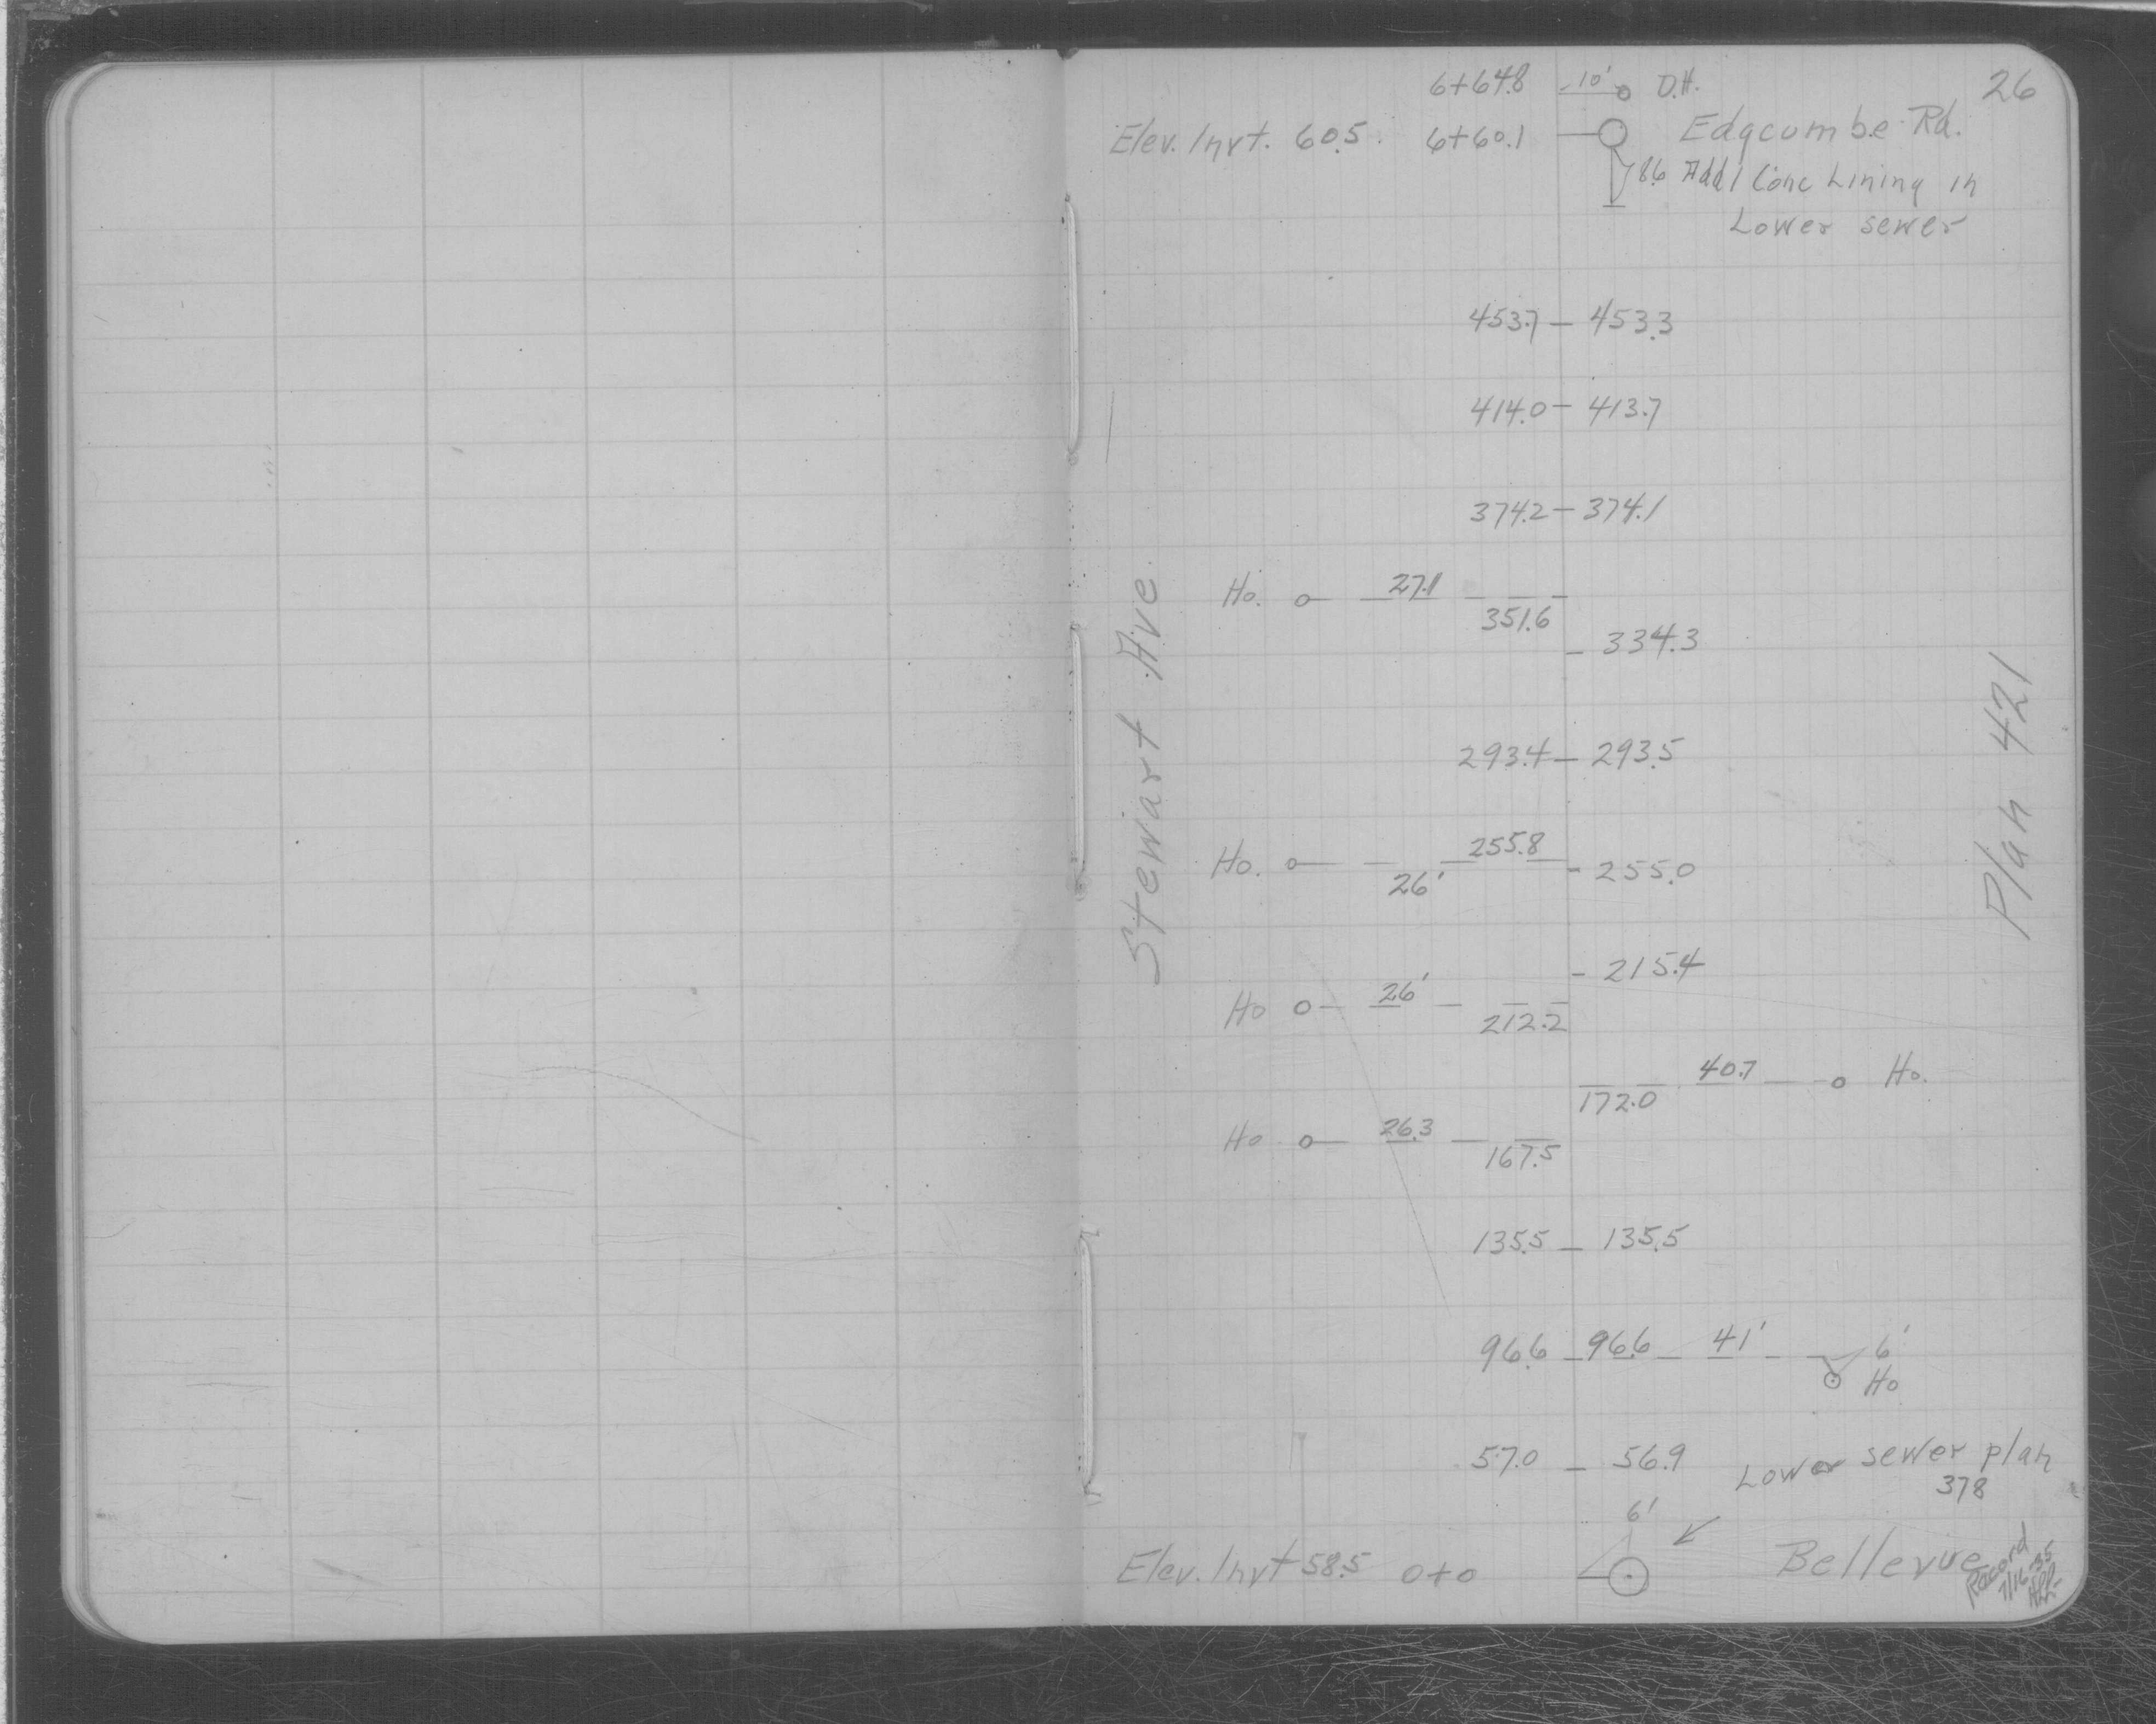 26
6+64.8 10' D.H.
Elev. Invt. 60.5 6+60.1 Edgcumbe Rd.
8.6 Add'l Conc Lining in
Lower sewer
453.7 - 453.3
414.0 - 413.7
374.2 - 374.1
Ho. 27.1
351.6
334.3
293.4 - 293.5
Ho. 255.8
26' 255.0
215.4
Ho 26'
212.2
40.7 Ho.
172.0
Ho 26.3
167.5
135.5 - 135.5
96.6 - 96.6 41' 6'
Ho
57.0 - 56.9 Lower sewer plan
378
6'
Elev. Invt 58.5 0+0 Bellevue
Record
7/16-35
Stewart Ave.
Plan 421